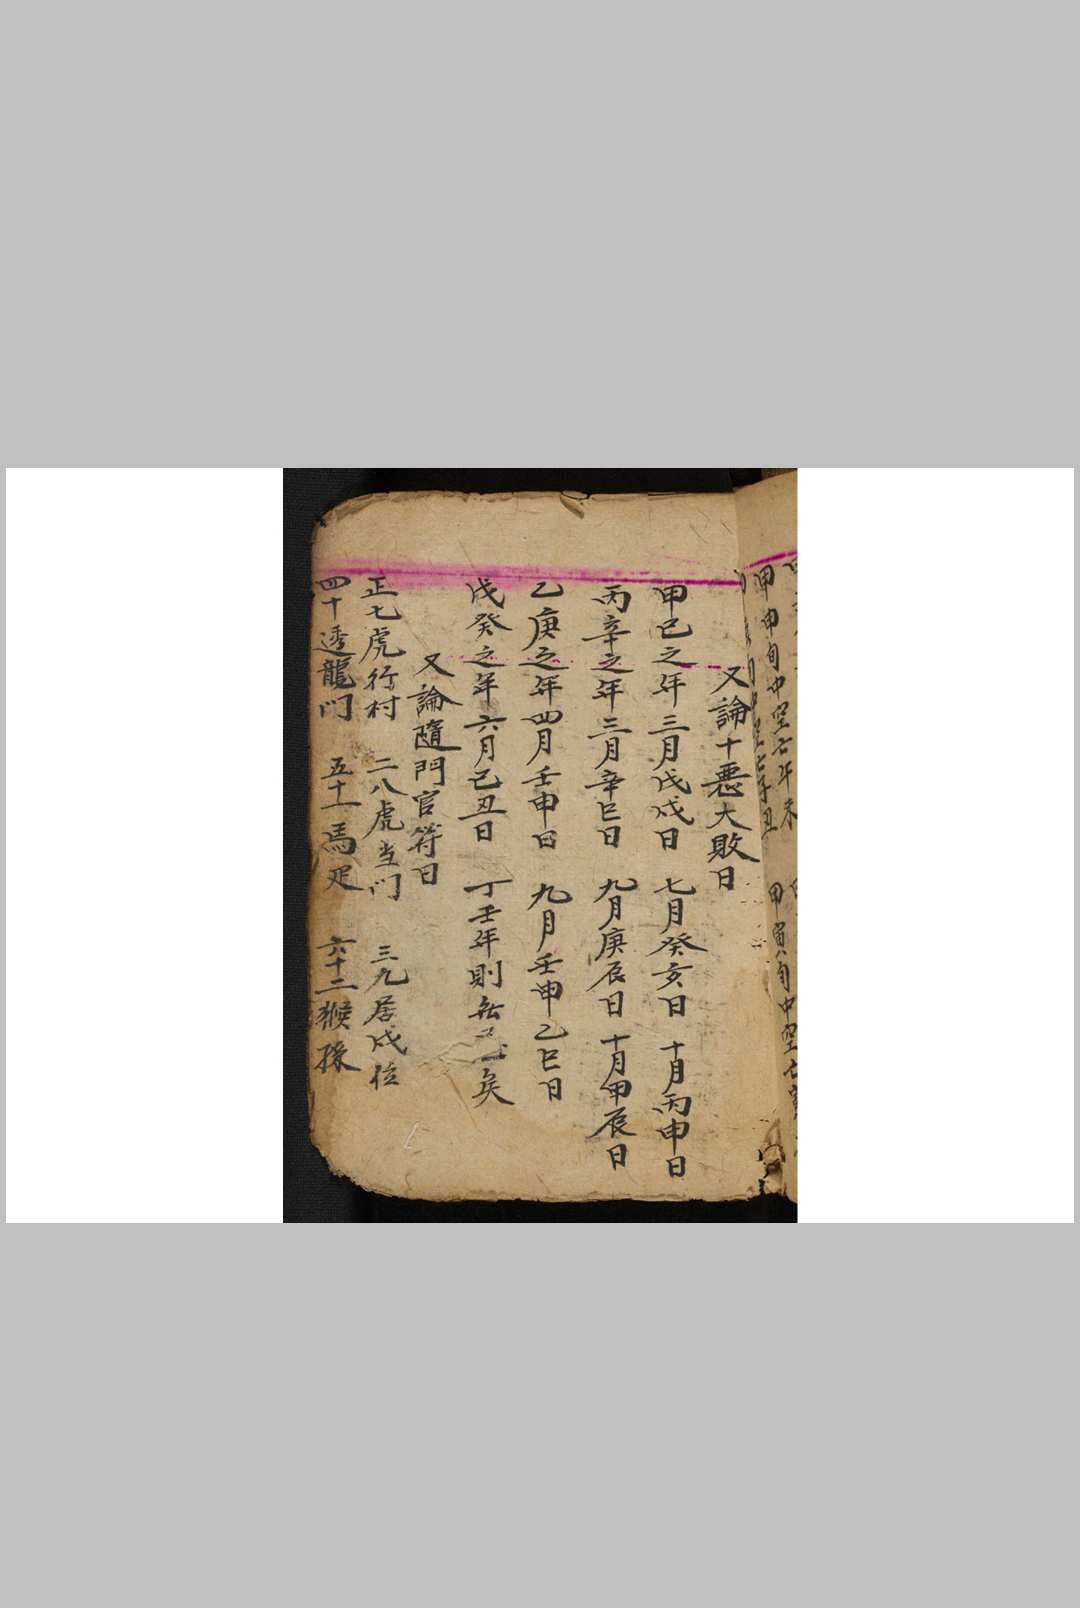 甲申旬中空亡午未
甲寅旬中空亡
又論十惡大敗日
甲己之年三月戊戌日 七月癸亥日 十月丙申日
丙辛之年三月辛巳日 九月庚辰日 十月甲辰日
乙庚之年四月壬申日 九月壬申乙巳日
戊癸之年六月己丑日 丁壬年則無 矣
又論隨門官符日
正七虎行村 二八虎当门 三九居戌位
四十透龍门 五十一馬 六十二猴孫